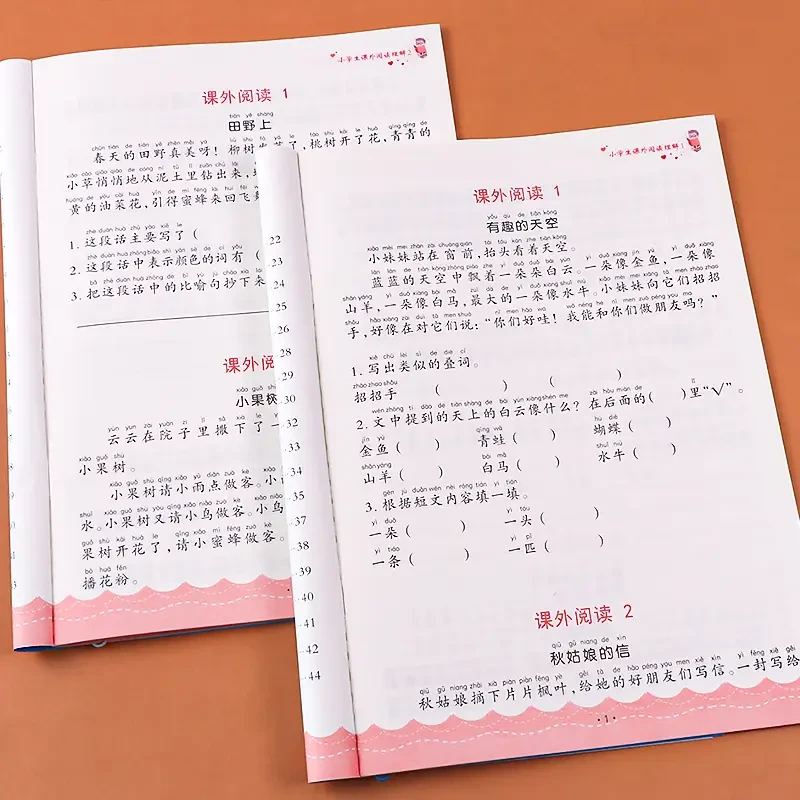 小学生课外阅读理解2
课外阅读 1
tián yě shàng
田野上
chūn tiān de tián yě zhēn měi ya
春天的田野真美呀！柳树出芽了，桃树开了花，青青的
小草悄悄地从泥土里钻出来，
黄的油菜花，引得蜜蜂来回飞
zhè duàn huà zhǔ yào xiě le
1. 这段话主要写了（
zhè duàn huà zhōng biǎo shì yán sè de cí yǒu
2. 这段话中表示颜色的词有（
bǎ zhè duàn huà zhōng de bǐ yù jù chāo xià lái
3. 把这段话中的比喻句抄下来
课外阅
xiǎo guǒ shù
小果树
yún yun zài yuàn zi lǐ sǎ xià le yí
云云在院子里撒下了一
xiǎo guǒ shù
小果树。
xiǎo guǒ shù qǐng xiǎo yǔ diǎn zuò kè
小果树请小雨点做客。小
水。小果树又请小鸟做客。小鸟
guǒ shù kāi huā le qǐng xiǎo mì fēng zuò kè
果树开花了，请小蜜蜂做客。
bō huā fěn
播花粉。
22
23
24
25
26
28
29
30
32
33
34
37
38
39
41
42
44
小学生课外阅读理解1
课外阅读 1
yǒu qù de tiān kōng
有趣的天空
xiǎo mèi mei zhàn zài chuāng qián tái tóu kàn zhe tiān kōng
小妹妹站在窗前，抬头看着天空。
蓝蓝的天空中飘着一朵朵白云。一朵像金鱼，一朵像
山羊，一朵像白马，最大的一朵像水牛。小妹妹向它们招招
手，好像在对它们说：“你们好哇！我能和你们做朋友吗？”
xiě chū lèi sì de dié cí
1. 写出类似的叠词。
zhāo zhao shǒu
招招手 （ ） （ ）
wén zhōng tí dào de tiān shàng de bái yún xiàng shén me zài hòu miàn de lǐ
2. 文中提到的天上的白云像什么？在后面的（ ）里“√”。
jīn yú qīng wā hú dié
金鱼（ ） 青蛙（ ） 蝴蝶（ ）
shān yáng bái mǎ shuǐ niú
山羊（ ） 白马（ ） 水牛（ ）
gēn jù duǎn wén nèi róng tián yì tián
3. 根据短文内容填一填。
yì duǒ yì tóu
一朵（ ） 一头（ ）
yì tiáo yì pǐ
一条（ ） 一匹（ ）
课外阅读 2
qiū gū niang de xìn
秋姑娘的信
qiū gū niang zhāi xià piàn piàn fēng yè gěi tā de hǎo péng you men xiě xìn yì fēng xiě gěi
秋姑娘摘下片片枫叶，给她的好朋友们写信。一封写给
·1·